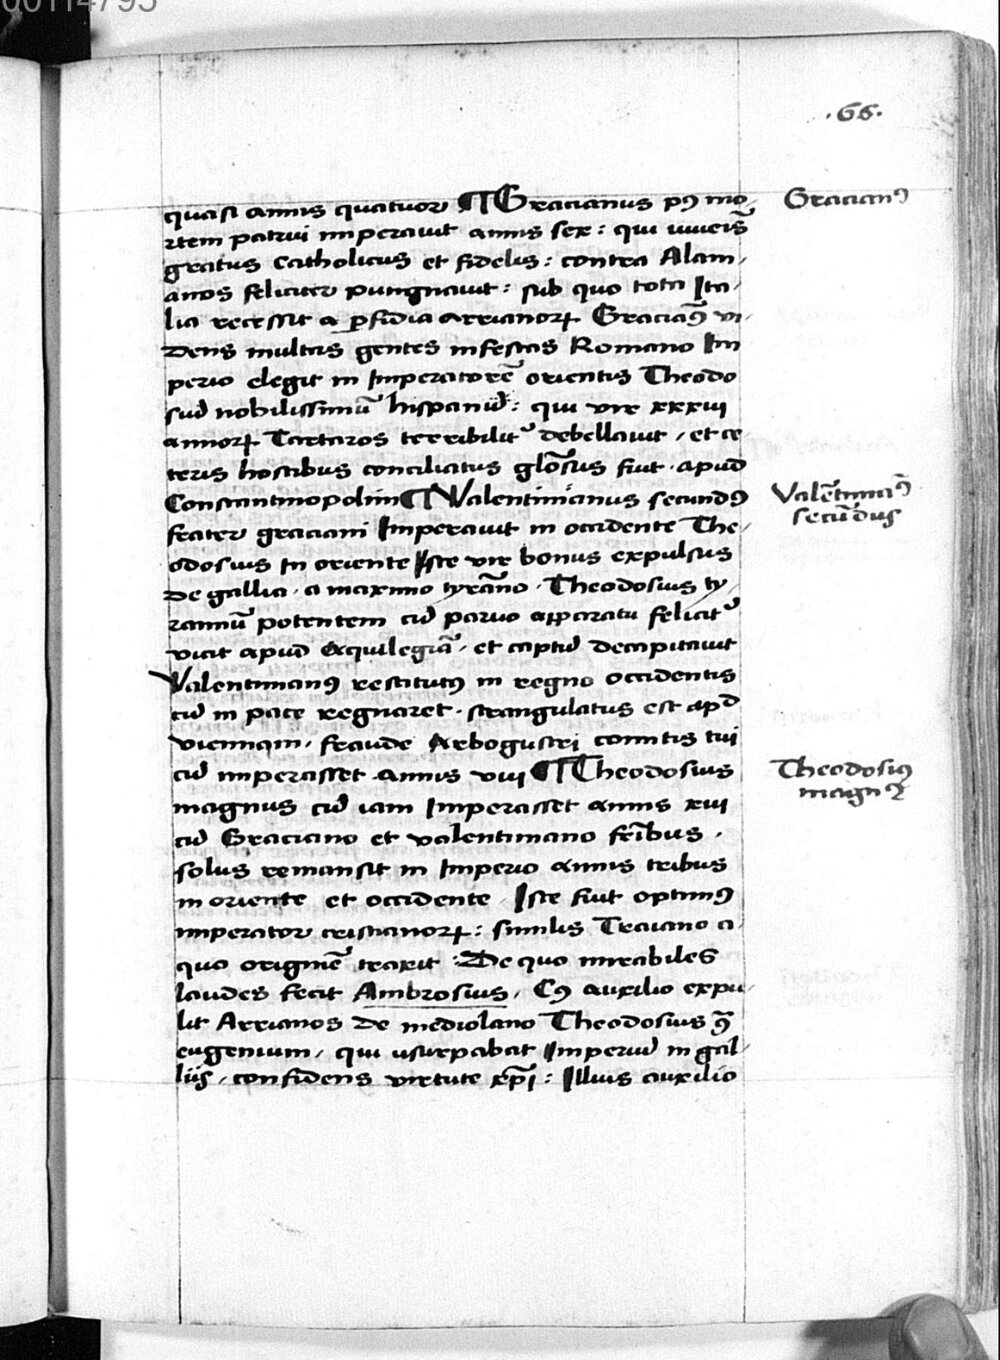 00114795
.66.
quasi annis quatuor ¶ Gracianus pꝰ mo-
rtem patrui imperauit annis sex : qui iuuenis
gratus catholicus et fidelis : contra Alam-
anos feliciter pungnauit : sub quo tota Ita-
lia recessit a ꝑfidia arrianorꝝ Gracianꝰ vi-
dens multas gentes infestas Romano Im
perio elegit in Imperatorē orientis Theodo
siū nobilissimū hispanū : qui vir xxxiii
annorꝝ Tartaros terribilit᷑ debellauit / et ce
teris hostibus conciliatus glōsus fuit . apud
Constantinopolim ¶ Valentinianus secundꝰ
frater graciani Imperauit in occidente The-
odosius In oriente Iste vir bonus expulsus
de gallia . a maximo tyrāno . Theodosius ty-
rannū potentem cū paruo apparatu felicit᷑
vicit apud Aquilegiā . et captū decapitauit
Valentinianꝰ restitutꝰ in regno occidentis
cū in pace regnaret . strangulatus est apd
viennam . fraude Arbogustri comitis sui
cū imperasset annis viii ¶ Theodosius
magnus cū iam Imperasset annis xiii
cū Graciano et valentiniano fr̄ibus .
solus remansit in Imperio annis tribus
in oriente et occidente . Iste fuit optimꝰ
imperator cristianorꝝ : similis Traiano a
quo originē traxit : De quo mirabiles
laudes fecit Ambrosius . Cꝰ auxilio expu-
lit Arrianos de mediolano Theodosius
eugenium / qui usurpabat Imperiū in gal-
liis . confidens virtute xp̄i : Illius auxilio
Gracianꝰ
Valētinianꝰ
secūdus
Theodosiꝰ
magnꝰ